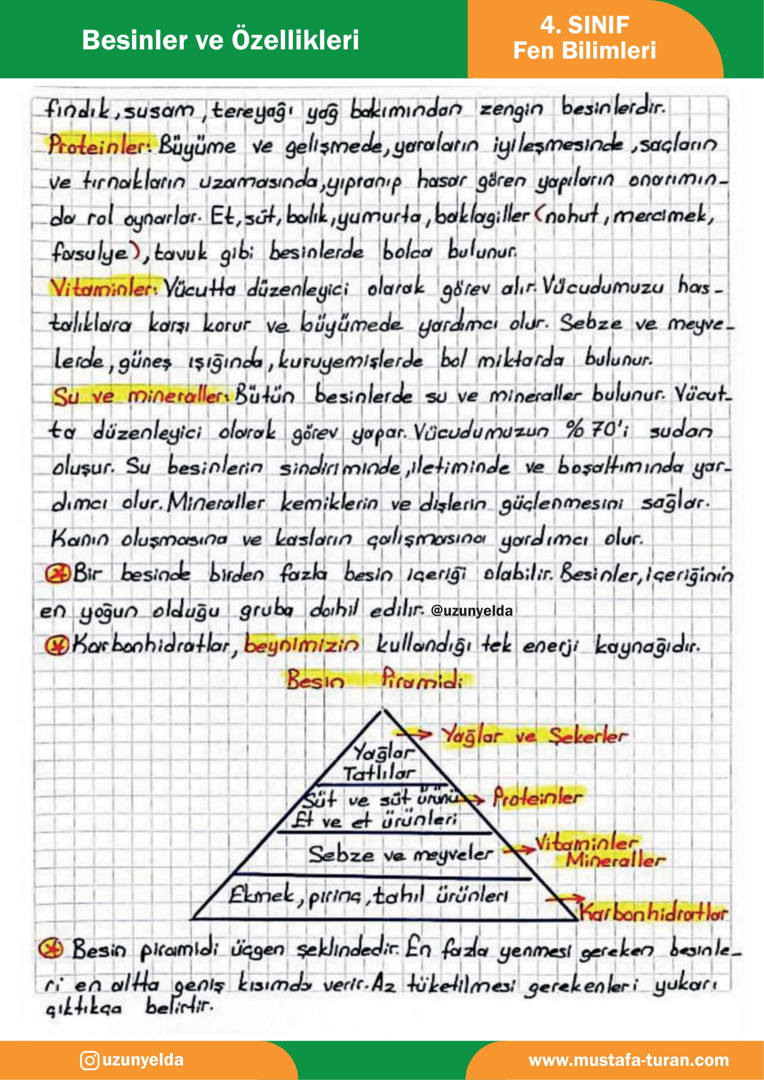 Besinler ve Özellikleri
4. SINIF
Fen Bilimleri
fındık, susam, tereyağı yağ bakımından zengin besinlerdir.
Proteinler: Büyüme ve gelişmede, yaraların iyileşmesinde, saçların
ve tırnakların uzamasında, yıpranıp hasar gören yapıların onarımın-
da rol oynarlar. Et, süt, balık, yumurta, baklagiller (nohut, mercimek,
fasulye), tavuk gibi besinlerde bolca bulunur.
Vitaminler: Vücutta düzenleyici olarak görev alır. Vücudumuzu has-
talıklara karşı korur ve büyümede yardımcı olur. Sebze ve meyve-
lerde, güneş ışığında, kuruyemişlerde bol miktarda bulunur.
Su ve mineraller: Bütün besinlerde su ve mineraller bulunur. Vücut-
ta düzenleyici olarak görev yapar. Vücudumuzun %70'i sudan
oluşur. Su besinlerin sindiriminde, iletiminde ve boşaltımında yar-
dımcı olur. Mineraller kemiklerin ve dişlerin güçlenmesini sağlar.
Kanın oluşmasına ve kasların çalışmasına yardımcı olur.
Bir besinde birden fazla besin içeriği olabilir. Besinler, içeriğinin
en yoğun olduğu gruba dahil edilir. @uzunyelda
Karbonhidratlar, beynimizin kullandığı tek enerji kaynağıdır.
Besin Piramidi
Yağlar ve Şekerler
Yağlar
Tatlılar
Süt ve süt ürünü Proteinler
Et ve et ürünleri
Sebze ve meyveler Vitaminler
Mineraller
Ekmek, pirinç, tahıl ürünleri
Karbonhidratlar
Besin piramidi üçgen şeklindedir. En fazla yenmesi gereken besinle-
ri en altta geniş kısımda verir. Az tüketilmesi gerekenleri yukarı
çıktıkça belirtir.
uzunyelda
www.mustafa-turan.com